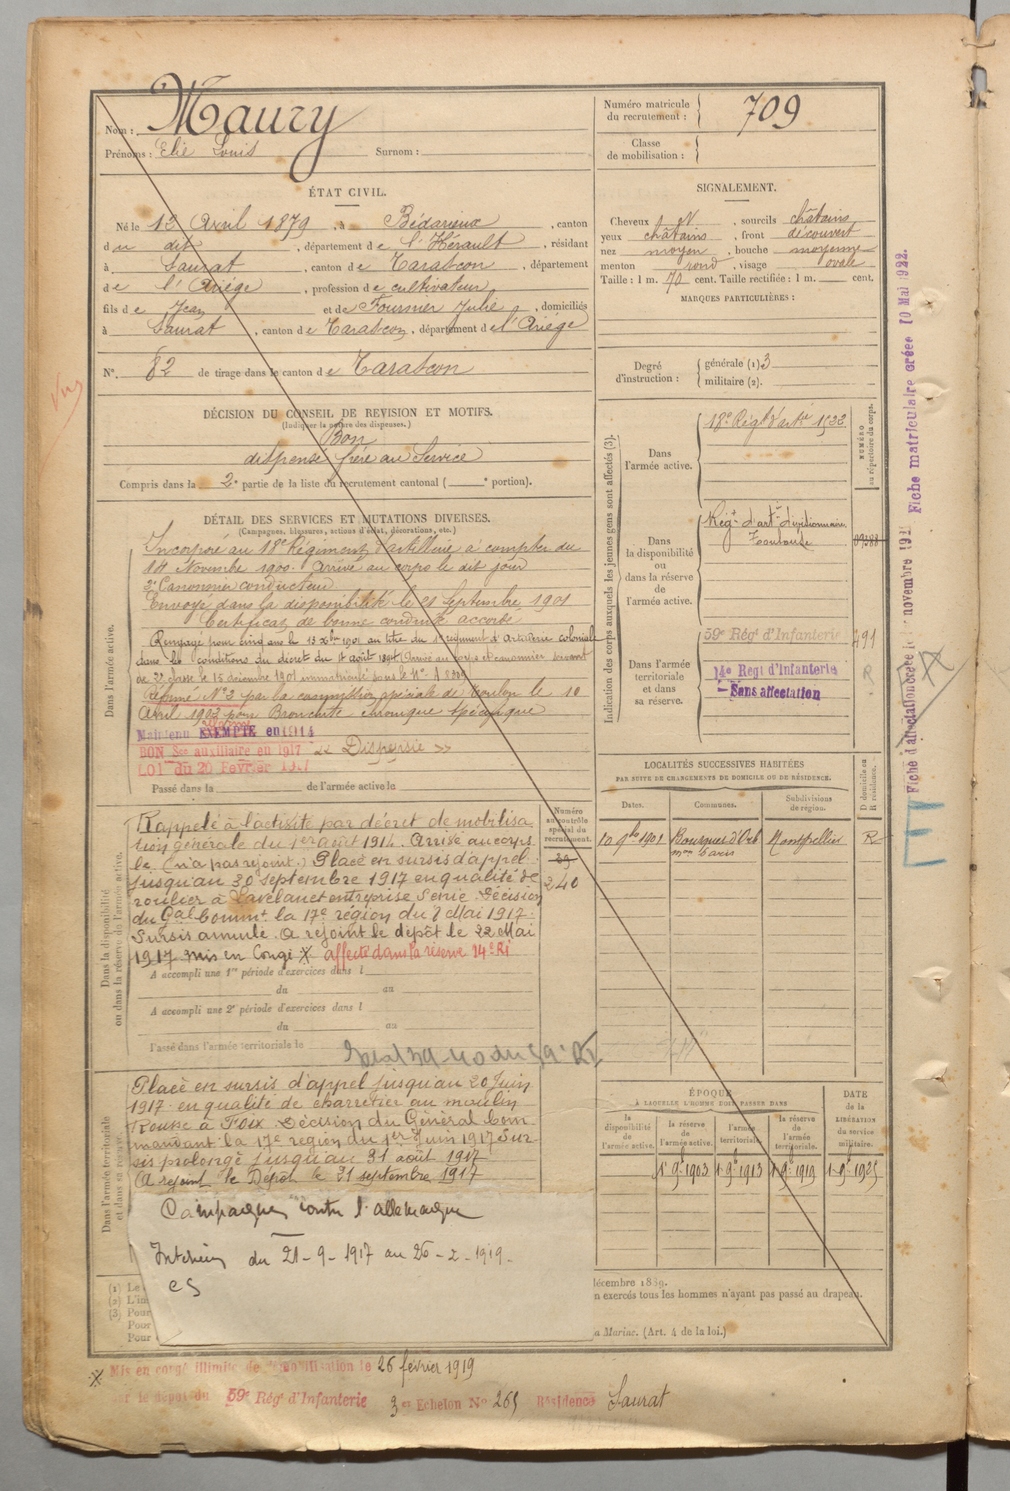 Nom : Maury
Prénoms : Elie Louis Surnom :
Numéro matricule du recrutement : 709
Classe de mobilisation :
ÉTAT CIVIL.
Né le 13 Avril 1879, à Bédarieux, canton
du dit, département de l'Hérault, résidant
à Saurat, canton de Tarascon, département
de l'Ariège, profession de cultivateur
fils de Jean et de Fournier Julie, domiciliés
à Saurat, canton de Tarascon, département de l'Ariège
N° 82 de tirage dans le canton de Tarascon
SIGNALEMENT.
Cheveux N, sourcils châtains
yeux châtains, front découvert
nez moyen, bouche moyenne
menton rond, visage ovale
Taille : 1 m. 70 cent. Taille rectifiée : 1 m. cent.
MARQUES PARTICULIÈRES :
Degré d'instruction : générale (1) 3
militaire (2).
DÉCISION DU CONSEIL DE REVISION ET MOTIFS.
(Indiquer la nature des dispenses.)
Bon
dispensé frère au Service
Compris dans la 2e partie de la liste du recrutement cantonal ( e portion).
DÉTAIL DES SERVICES ET MUTATIONS DIVERSES.
(Campagnes, blessures, actions d'éclat, décorations, etc.)
Dans l'armée active.
Incorporé au 18e Régiment d'artillerie à compter du
14 Novembre 1900. Arrivé au corps le dit jour
2e Canonnier conducteur
Envoyé dans la disponibilité le 21 Septembre 1901
Certificat de bonne conduite accordé
Rengagé pour cinq ans le 13 Xbre 1901 au titre du 1er régiment d'Artillerie coloniale
dans les conditions du décret du 4 août 1894 (Arrivé au corps et canonnier servant
de 2e classe le 15 décembre 1901 immatriculé sous le N°
Réformé N° 2 par la commission spéciale de Toulon le 10
Avril 1903 pour Bronchite chronique spécifique
Maintenu EXEMPTE en 1914
BON Sce auxiliaire en 1917 « Dispensé »
LOI du 20 Février 1917
Passé dans la de l'armée active le
Indication des corps auxquels les jeunes gens sont affectés (3).
NUMÉRO au répertoire du corps.
Dans l'armée active.
18e Régt d'artie 1532
Dans la disponibilité ou dans la réserve de l'armée active.
Régt d'artie divisionnaire
Toulouse
Dans l'armée territoriale et dans sa réserve.
59e Régt d'Infanterie 791
14e Regt d'Infanterie R
- Sans affectation
Fiche d'affectation créée le novembre 192 Fiche matriculaire créée 10 Mai 1922.
Vu
Dans la disponibilité ou dans la réserve de l'armée active.
Numéro au contrôle spécial du recrutement.
39
240
Rappelé à l'activité par décret de mobilisa
tion générale du 1er août 1914. Arrivé au corps
le (n'a pas rejoint.) Placé en sursis d'appel
jusqu'au 30 septembre 1917 en qualité de
roulier à Lavelanet entreprise Serie. Décision
du Gal Commt la 17e région du 8 Mai 1917.
Sursis annulé. A rejoint le dépôt le 22 Mai
1917 mis en Congé X affecté dans la réserve 14e RI
A accompli une 1re période d'exercices dans l
du au
A accompli une 2e période d'exercices dans l
du au
Passé dans l'armée territoriale le
LOCALITÉS SUCCESSIVES HABITÉES
PAR SUITE DE CHANGEMENTS DE DOMICILE OU DE RÉSIDENCE.
Dates. Communes. Subdivisions de région. D domicile ou R résidence.
10 9bre 1901 Montpellier R
Dans l'armée territoriale et dans sa réserve.
Placé en sursis d'appel jusqu'au 20 Juin
1917 en qualité de charretier au moulin
Rouse à Foix. Décision du Général Com
mandant la 17e région du 1er Juin 1917. Sur
sis prolongé jusqu'au 31 août 1917
A rejoint le Dépôt le 21 septembre 1917
ÉPOQUE
À LAQUELLE L'HOMME DOIT PASSER DANS
DATE de la LIBÉRATION du service militaire.
la disponibilité de l'armée active. la réserve de l'armée active. l'armée territoriale. la réserve de l'armée territoriale.
1er 9bre 1903 1er 9bre 1913 1er 9bre 1919 1er 9bre 1925
Campagnes contre l'allemagne
Intérieur du 21-9-1917 au 26-2-1919.
(1) Le
(2) L'in
(3) Pour
Pour
Pour
décembre 1889.
n exercés tous les hommes n'ayant pas passé au drapeau.
a Marine. (Art. 4 de la loi.)
X Mis en congé illimité de démobilisation le 26 février 1919
par le dépôt du 59e Régt d'Infanterie 3e Echelon N° 265 Résidence Saurat